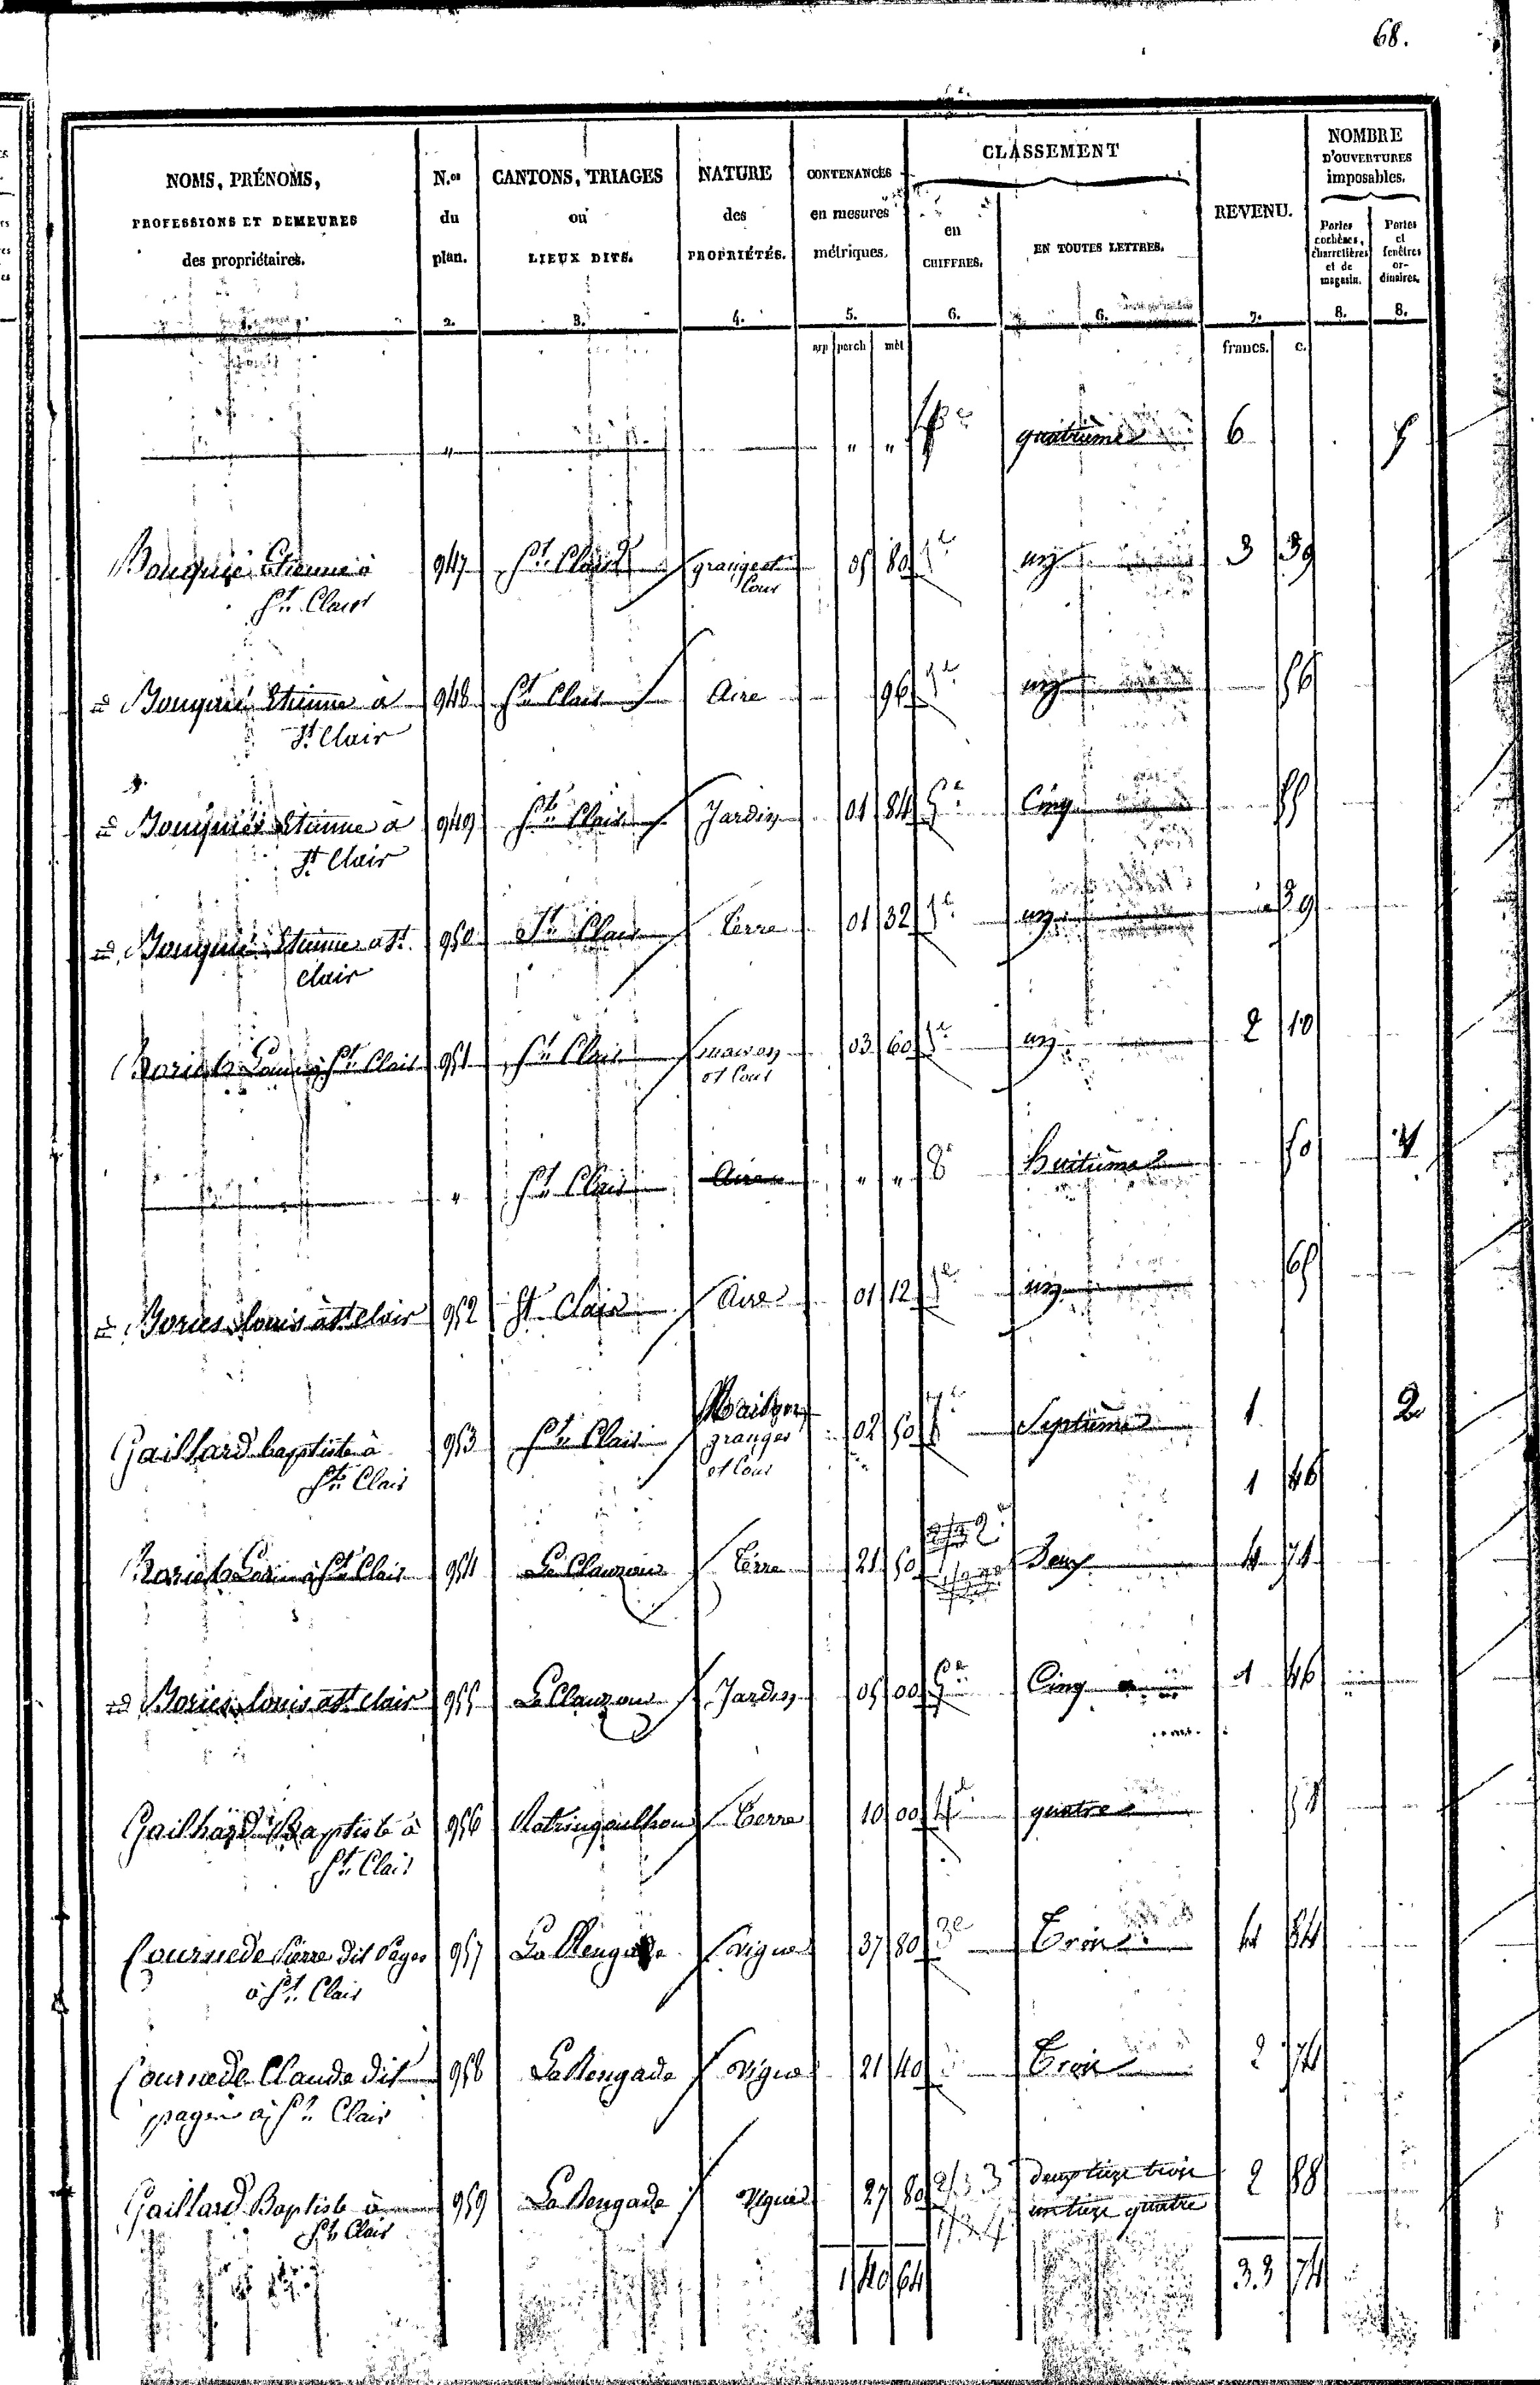 68.
NOMS, PRÉNOMS, PROFESSIONS ET DEMEURES des propriétaires.
N.os du plan. 2.
CANTONS, TRIAGES ou LIEUX DITS. 3.
NATURE des PROPRIÉTÉS. 4.
CONTENANCES en mesures métriques. 5.
CLASSEMENT
en CHIFFRES. 6.
EN TOUTES LETTRES. 6.
REVENU. 7.
NOMBRE D'OUVERTURES imposables.
Portes cochères, charretières et de magasin. 8.
Portes et fenêtres ordinaires. 8.
arp perch mèt francs. c.
" " " quatrième 6 5
Bouquié Etienne à 947 St. Clair grange et 05 80 1e un 3 39
St. Clair Cour
id Bouquié Etienne à 948 St. Clair Aire 96 1e un 56
St. Clair
id Bouquié Etienne à 949 St. Clair Jardin 01 84 5e Cinq 55
St. Clair
id Bouquié Etienne a St. 950 St. Clair Terre 01 32 1e un 39
Clair
Bories Louis à St. Clair 951 St. Clair maison 03 60 1e un 2 10
et Cour
" St. Clair Aire " " 8e huitième 50 4
id Bories Louis à St. Clair 952 St. Clair Aire 01 12 1e un 65
Gaillard baptiste à 953 St. Clair Maison 02 50 7e Septième 1 2
St. Clair granges et Cour 1 46
Bories Louis à St. Clair 954 Le Clauzou Terre 21 50 2e Deux 4 71
id Bories Louis a St. Clair 955 Le Clauzou Jardin 05 00 5e Cinq 1 46
Gailhard Baptiste à 956 Terre 10 00 4e quatre 51
St. Clair
Cournede Pierre dit Pages 957 La Rengade vigne 37 80 3e Trois 4 84
à St. Clair
Cournede Claude dit 958 La Rengade vigne 21 40 Trois 2 74
pages à St. Clair
Gaillard Baptiste à 959 La Rengade Vigne 27 80 2/3 3 deux tiers trois 2 88
St. Clair 1/3 4 un tiers quatre
1 40 64 33 74